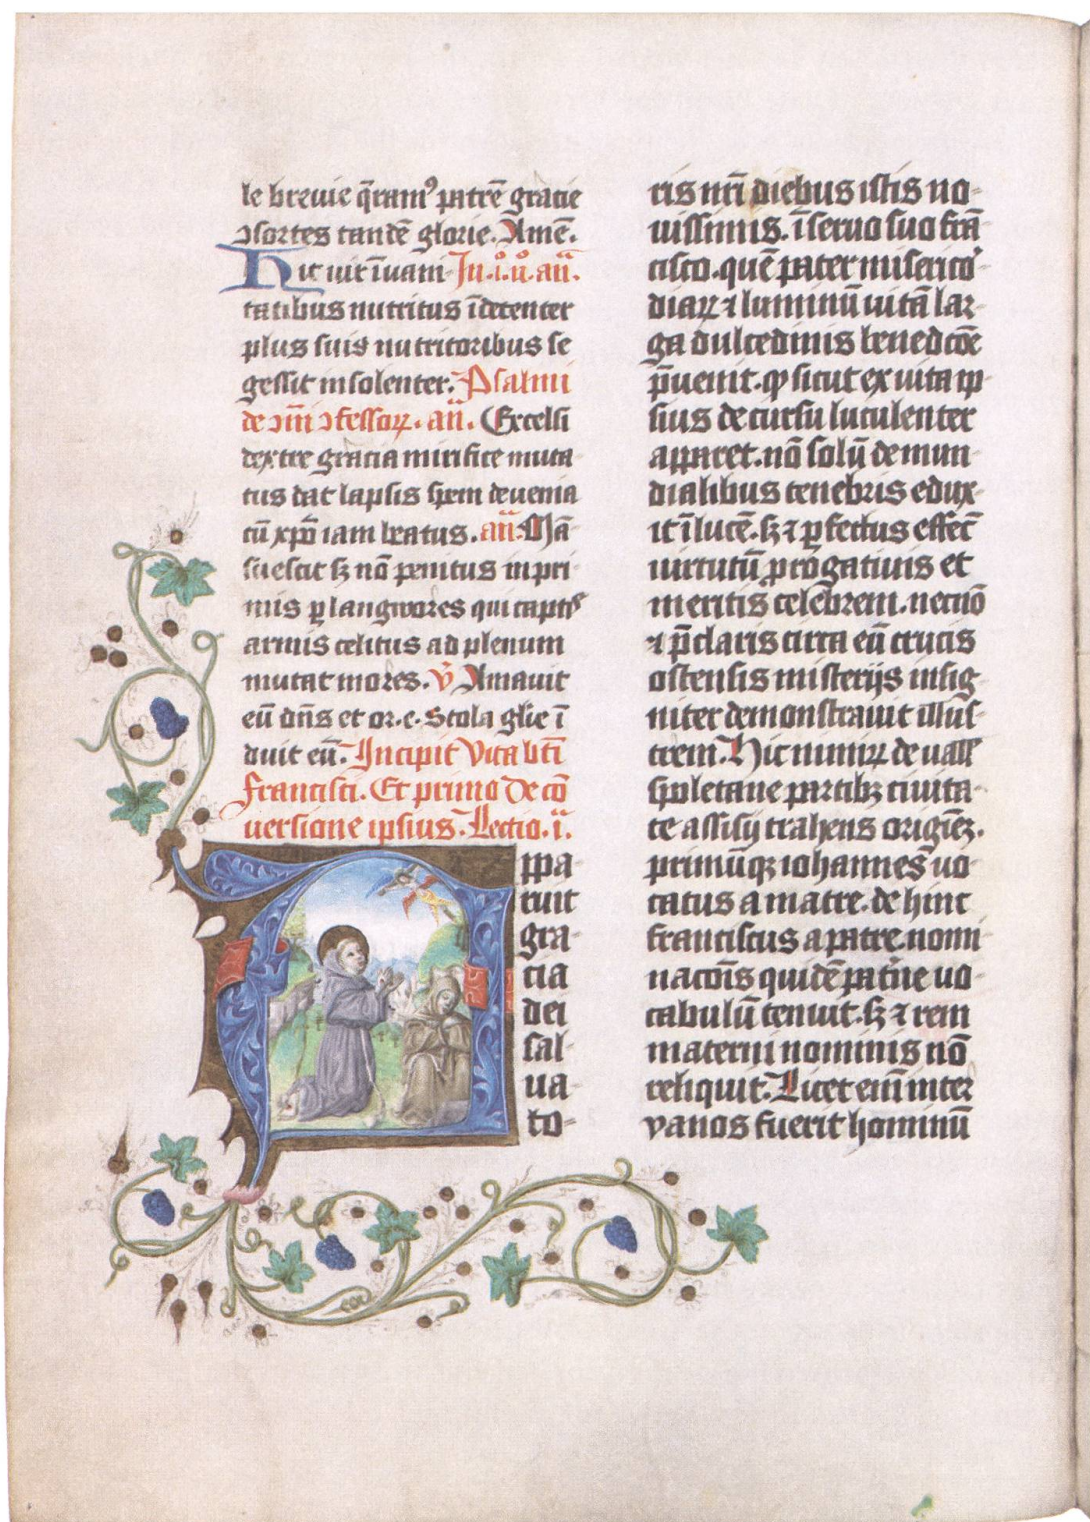 le breuie q̄ram⁹ patrē gracie
ɔsortes tandē glorie. Amē.
Hic uir ī uani In .i. n̊. an̄.
tatibus nutritus īdecenter
plus suis nutritoribus se
gessit insolenter. Psalmi
de ɔīn ɔfessoꝝ. an̄. Excelsi
dextre gracia mirifice muta
tus dat lapsis spem de uenia
cū xpō iam beatus. an̄. Mā-
suescit sꝫ nō penitus in pri-
mis ꝑ langwores qui captis
armis celitus ad plenum
mutat mores. v̊ Amauit
eū dn̄s et or.e. Stola glīe ī
duit eū. Incipit Vita bt̄i
francisci. Et primo De cō
uersione ipsius. Lectio .i.
ppa-
ruit
gra-
cia
dei
sal-
ua-
to-
ris nr̄i diebus istis no-
uissimis. ī seruo suo frā
cisco. quē pater misericor-
diaꝝ ⁊ luminū uitā lar-
ga dulcedinis benedcōe
p̄uenit. ꝙ sicut ex uita ip-
sius de cursu luculenter
apparet. nō solū de mun-
dialibus tenebris edux-
it ī lucē. sꝫ ⁊ ꝑfectus effec̄
uirtutū progatiuis et
meritis celebrem. necnō
⁊ p̄claris circa eū crucis
ostensis misterijs insig-
niter demonstrauit illus-
trem. Hic nimiꝝ de uall'
spoletane partibꝫ ciuita-
te assisij trahens origiēꝫ.
primūqꝫ iohannes uo-
catus a matre. de hinc
franciscus a patre. nomi
nacōis quidē pat'ne uo-
cabulū tenuit. sꝫ ⁊ rem
materni nominis nō
reliquit. Licet eīm inter
vanos fuerit hominū